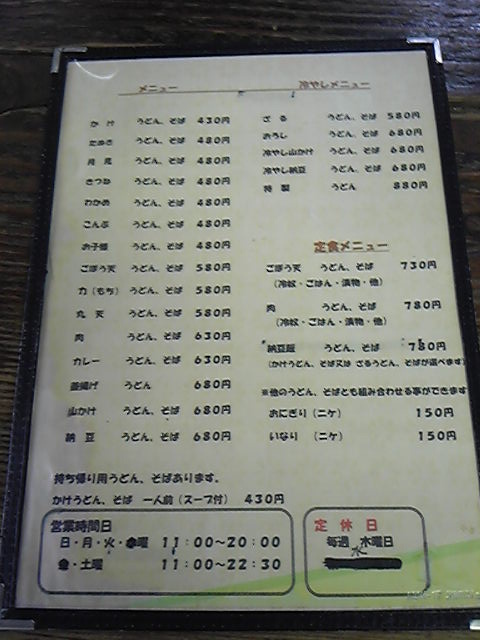 メニュー
かけ うどん、そば 430円
たぬき うどん、そば 480円
月見 うどん、そば 480円
きつね うどん、そば 480円
わかめ うどん、そば 480円
こんぶ うどん、そば 480円
お子様 うどん、そば 480円
ごぼう天 うどん、そば 580円
力(もち) うどん、そば 580円
丸天 うどん、そば 580円
肉 うどん、そば 630円
カレー うどん、そば 630円
釜揚げ うどん 680円
山かけ うどん、そば 680円
納豆 うどん、そば 680円
冷やしメニュー
ざる うどん、そば 580円
おろし うどん、そば 680円
冷やし山かけ うどん、そば 680円
冷やし納豆 うどん、そば 680円
特製 うどん 880円
定食メニュー
ごぼう天 うどん、そば 730円
(冷奴・ごはん・漬物・他)
肉 うどん、そば 780円
(冷奴・ごはん・漬物・他)
納豆 うどん、そば
(かけうどん、そば又は ざるうどん、そばが選べます)
※他のうどん、そばとも組み合わせる事ができます
おにぎり (ニケ) 150円
いなり (ニケ) 150円
持ち帰り用うどん、そばあります。
かけうどん、そば 一人前(スープ付) 430円
営業時間日
日・月・火・ 曜 11:00~20:00
金・土曜 11:00~22:30
定休日
毎週 水曜日